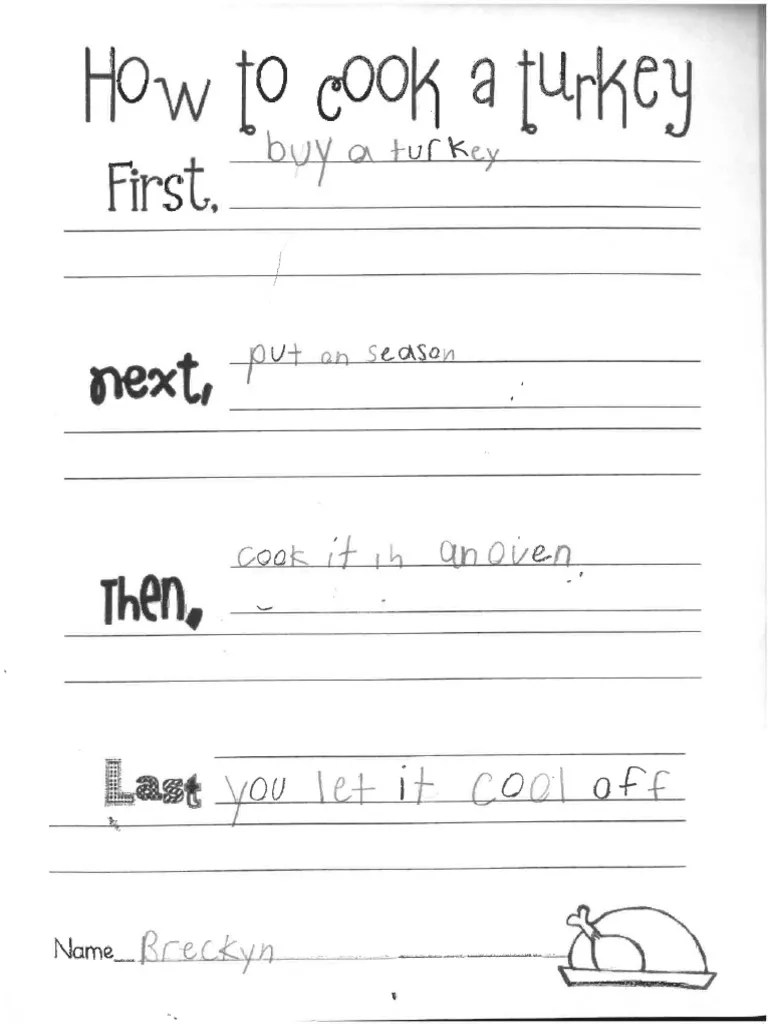 How to cook a turkey
First, buy a turkey
next, put an season
Then, cook it in an oven
Last you let it cool off
Name Breckyn